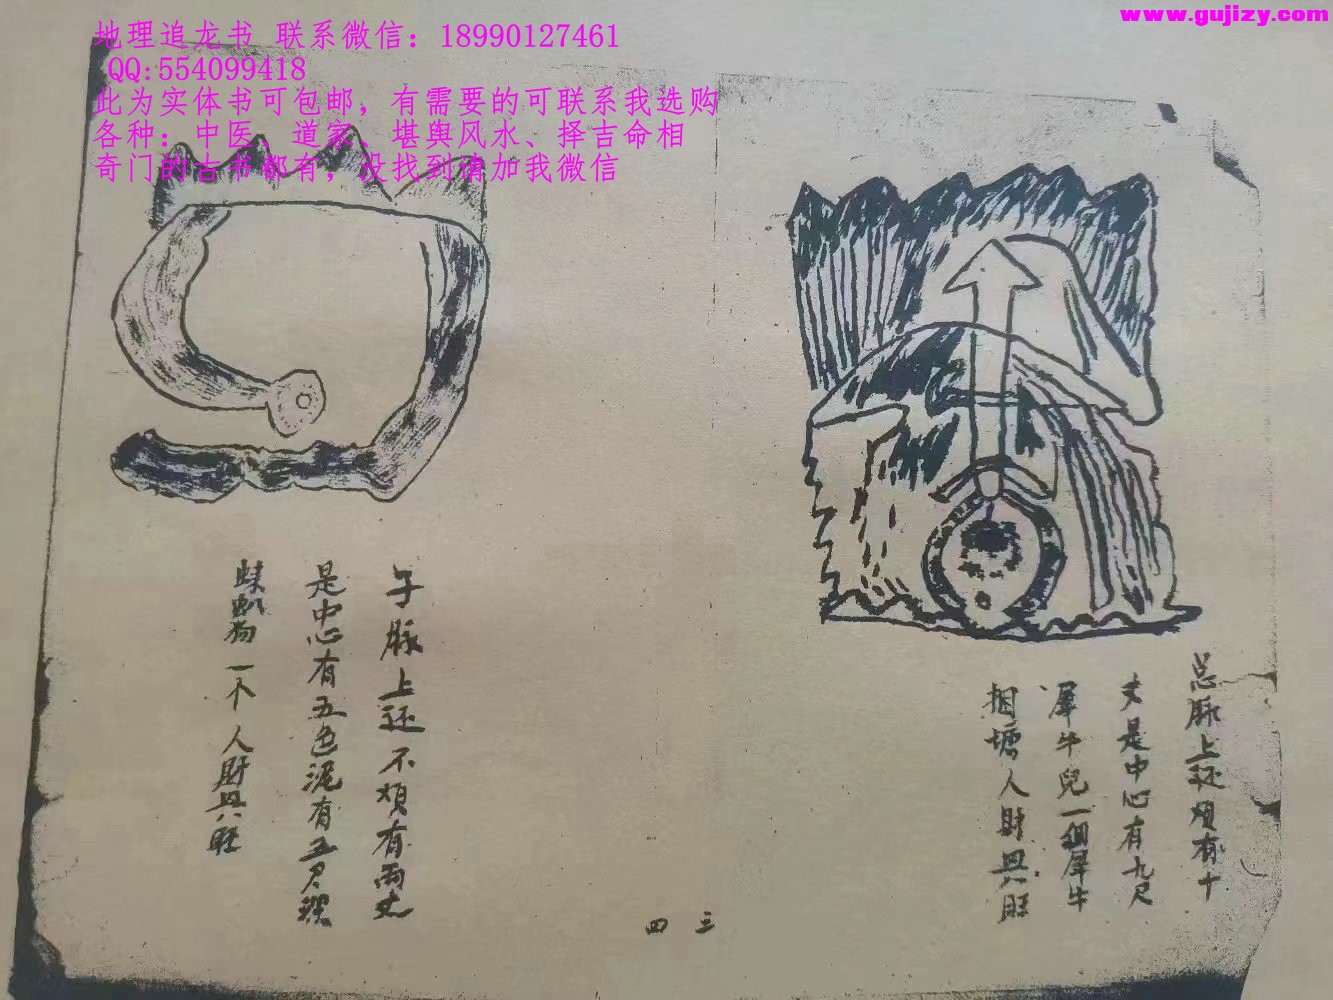 www.gujizy.com
地理追龙书 联系微信：18990127461
QQ:554099418
此为实体书可包邮，有需要的可联系我选购
各种：中医、道家、堪舆风水、择吉命相
奇门的古书都有，没找到请加我微信
总脉上还 有十
丈是中心有九尺
犀牛兒一個犀牛
塘人財興旺
子脉上还不 有兩丈
是中心有五色泥有五尺深
一个人財興旺
三
四